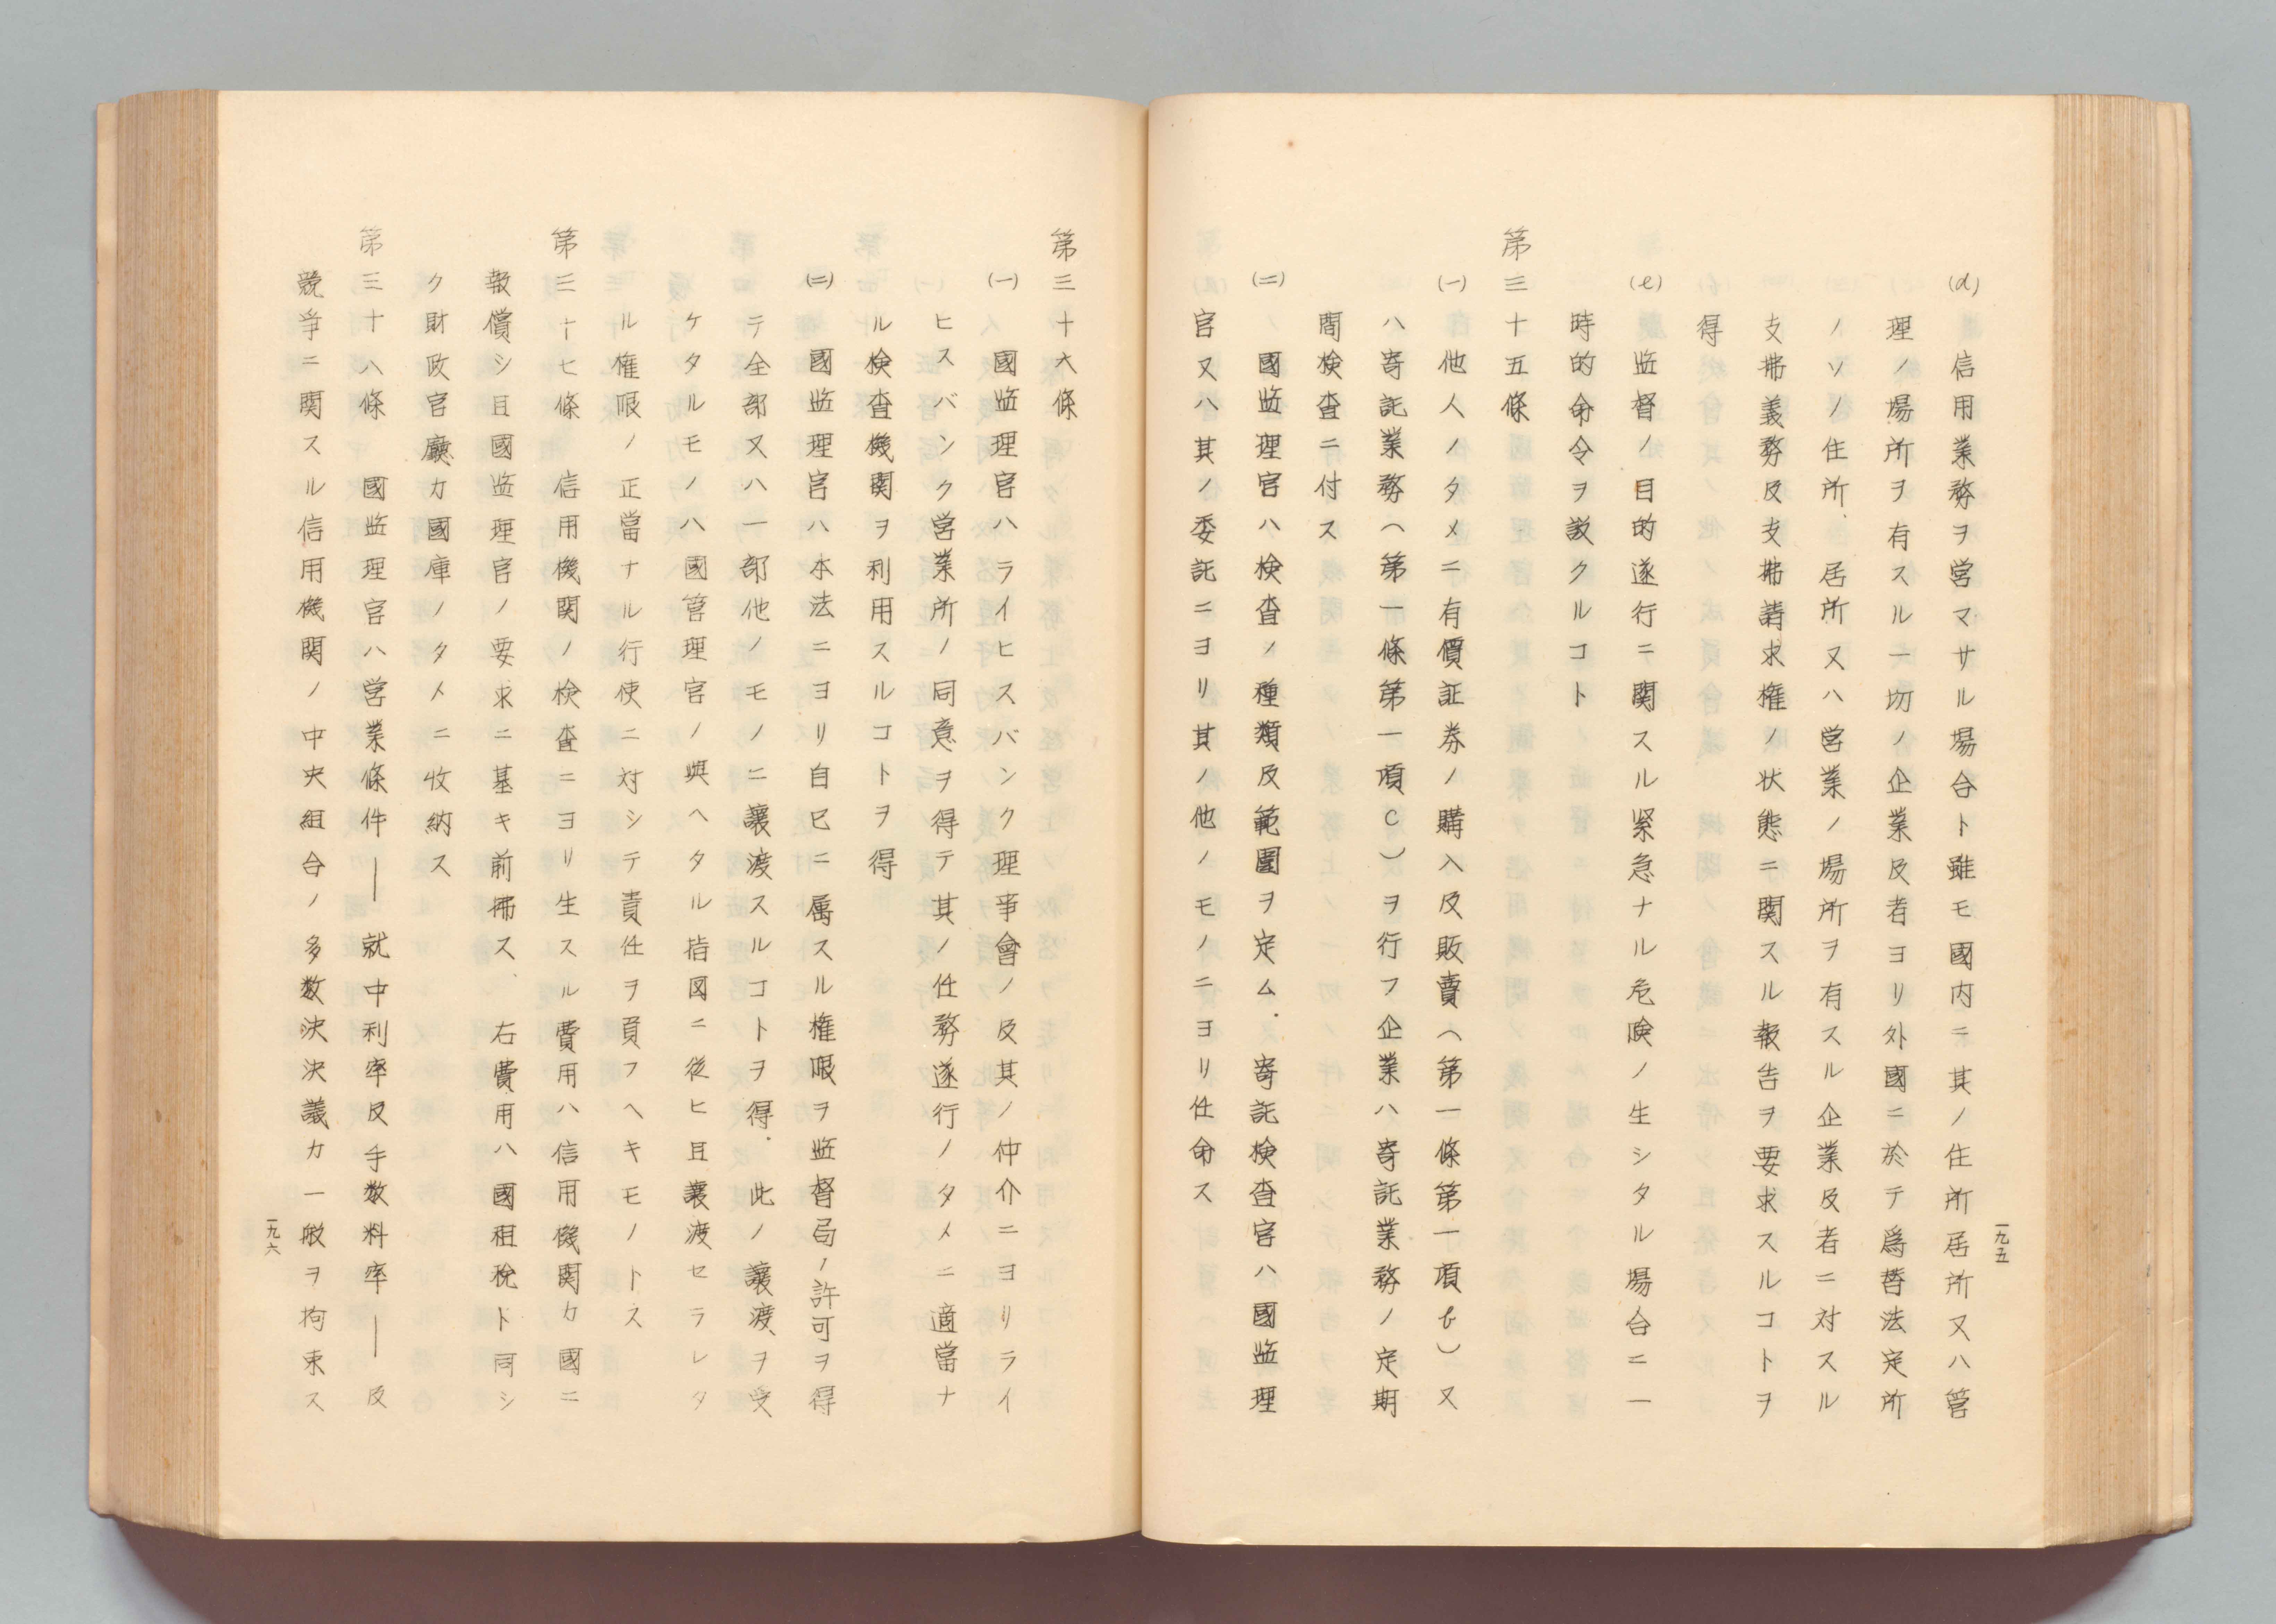 一九五
(d) 信用業務ヲ営マサル場合ト雖モ國内ニ其ノ住所居所又ハ管
理ノ場所ヲ有スル一切ノ企業及者ヨリ外國ニ於テ爲替法定所
ノソノ住所、居所又ハ営業ノ場所ヲ有スル企業及者ニ対スル
支拂義務及支拂請求権ノ状態ニ関スル報告ヲ要求スルコトヲ
得
(e) 監督ノ目的遂行ニ関スル緊急ナル危険ノ生シタル場合ニ一
時的命令ヲ設クルコト
第三十五條
(一) 他人ノタメニ有價証券ノ購入及販賣(第一條第一項b)又
ハ寄託業務(第一條第一項C)ヲ行フ企業ハ寄託業務ノ定期
間検査ニ付ス
(二) 國監理官ハ検査ノ種類及範圍ヲ定ム．寄託検査官ハ國監理
官又ハ其ノ委託ニヨリ其ノ他ノモノニヨリ任命ス
第三十六條
(一) 國監理官ハライヒスバンク理事會ノ及其ノ仲介ニヨリライ
ヒスバンク営業所ノ同意ヲ得テ其ノ任務遂行ノタメニ適當ナ
ル検査機関ヲ利用スルコトヲ得
(二) 國監理官ハ本法ニヨリ自已ニ属スル権限ヲ監督局ノ許可ヲ得
テ全部又ハ一部他ノモノニ讓渡スルコトヲ得．此ノ讓渡ヲ受
ケタルモノハ國管理官ノ與ヘタル指図ニ後ヒ且讓渡セラレタ
ル権限ノ正當ナル行使ニ対シテ責任ヲ負フヘキモノトス
第三十七條 信用機関ノ検査ニヨリ生スル費用ハ信用機関カ國ニ
報償シ且國監理官ノ要求ニ基キ前拂ス、右費用ハ國租税ト同シ
ク財政官廳カ國庫ノタメニ收納ス
第三十八條 國監理官ハ営業條件―就中利率及手数料率―及
競争ニ関スル信用機関ノ中央組合ノ多数決決議カ一般ヲ拘束ス
一九六